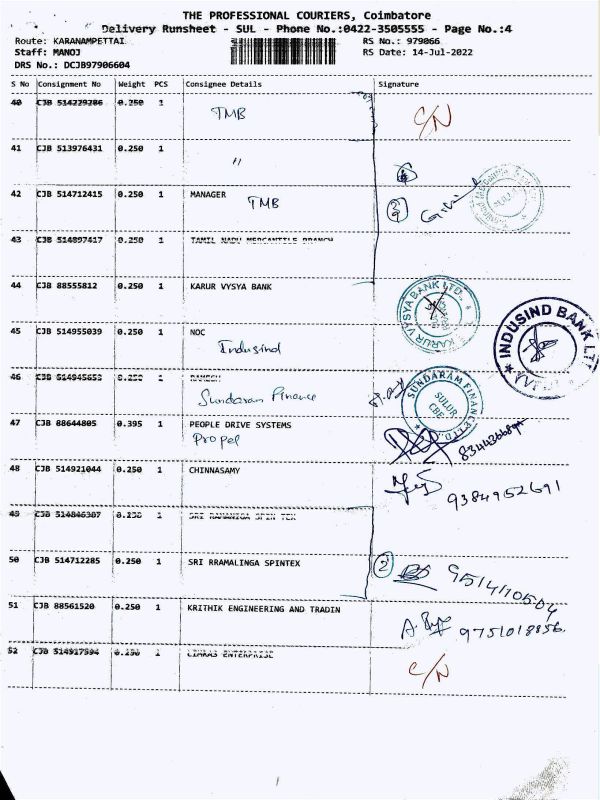 THE PROFESSIONAL COURIERS, Coimbatore
Delivery Runsheet - SUL - Phone No.:0422-3505555 - Page No.:4
Route: KARANAMPETTAI RS No.: 979066
Staff: MANOJ RS Date: 14-Jul-2022
DRS No.: DCJB97906604
S No Consignment No Weight PCS Consignee Details Signature
40 CJB 514229286 0.250 1
TMB C/N
41 CJB 513976431 0.250 1
"
42 CJB 514712415 0.250 1 MANAGER
TMB
43 CJB 514897417 0.250 1 TAMIL NADU MERCANTILE BRANCH
44 CJB 88555812 0.250 1 KARUR VYSYA BANK
KARUR VYSYA BANK LTD.
45 CJB 514955039 0.250 1 NOC
Indusind
INDUSIND BANK LT
46 CJB 514945653 0.250 1 RAMESH
Sundaram Finance
SUNDARAM FINANCE LTD.
SULUR
CBE
47 CJB 88644805 0.395 1 PEOPLE DRIVE SYSTEMS
Propel
48 CJB 514921044 0.250 1 CHINNASAMY
9384952691
49 CJB 514846307 0.250 1 SRI RAMANIGA SPIN TEX
50 CJB 514712285 0.250 1 SRI RRAMALINGA SPINTEX
2
51 CJB 88561520 0.250 1 KRITHIK ENGINEERING AND TRADIN
9751018856.
52 CJB 514917594 0.250 1 LIMRAS ENTERPRISE
C/N